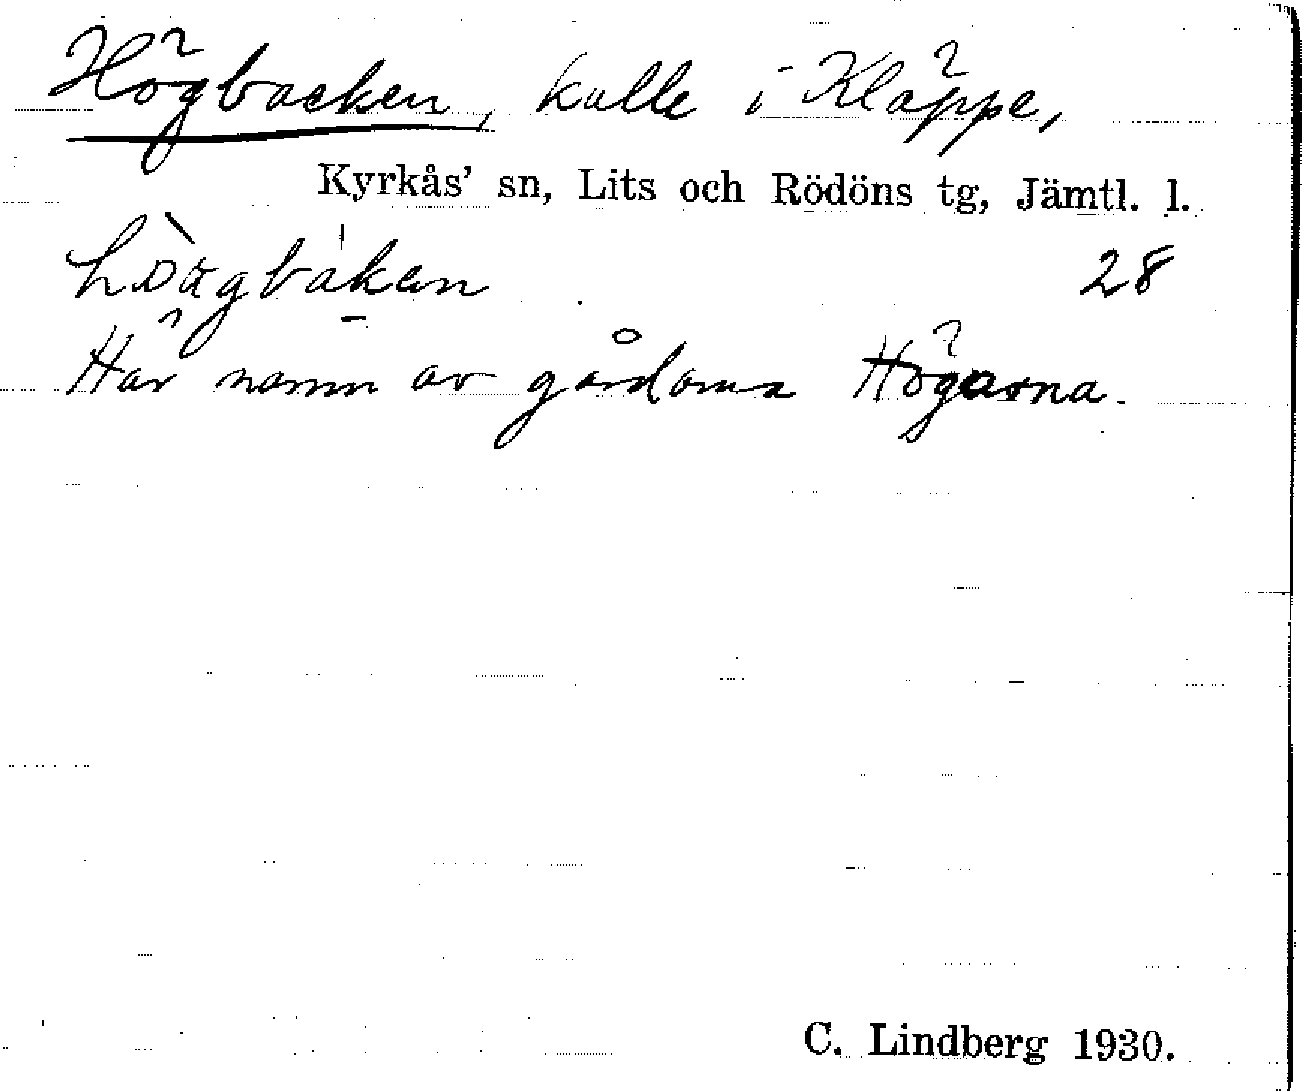 Högbacken, kulle i Kläppe,
Kyrkås' sn, Lits och Rödöns tg, Jämtl. l.
28
Har namn av gårdarna Högarna.
C. Lindberg 1930.